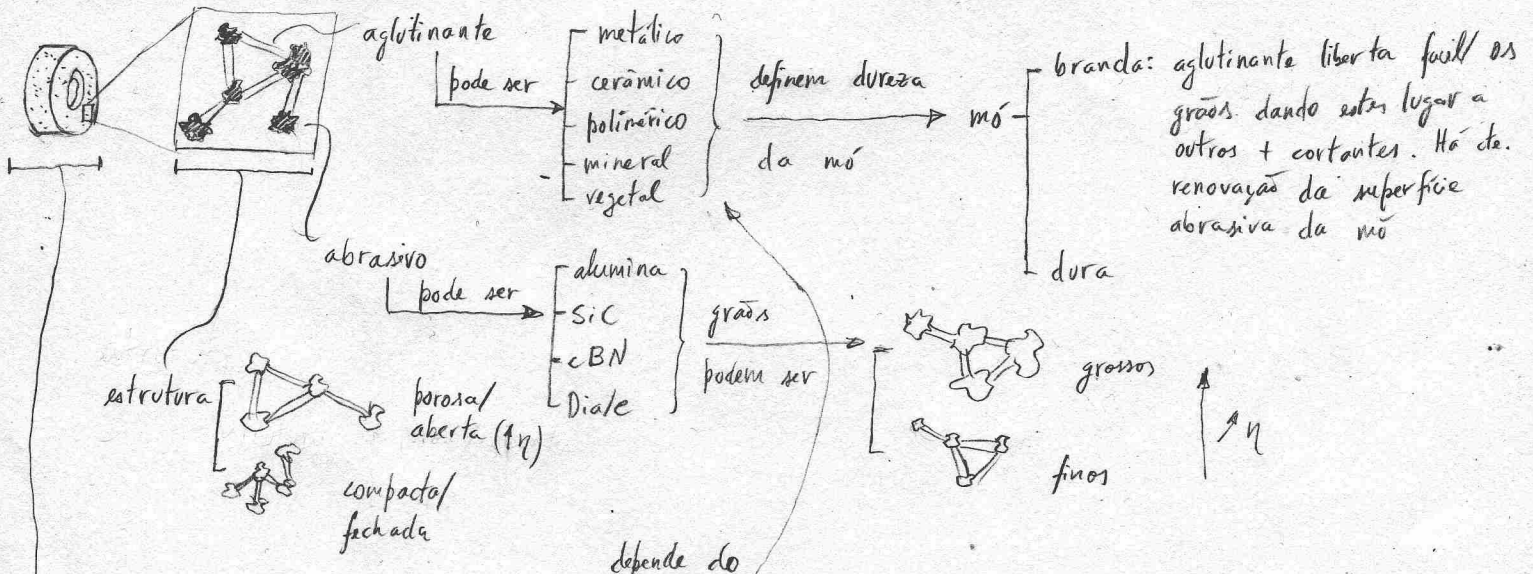 aglutinante
pode ser
metálico
cerâmico
polimérico
mineral
vegetal
definem dureza
da mó
mó
branda: aglutinante liberta facil/ os
grãos dando estes lugar a
outros + cortantes. Há cte.
renovação da superfície
abrasiva da mó
dura
abrasivo
pode ser
alumina
SiC
cBN
Dia/e
grãos
podem ser
grossos
finos
↗ η
estrutura
porosa/
aberta (↑η)
compacta/
fechada
depende do